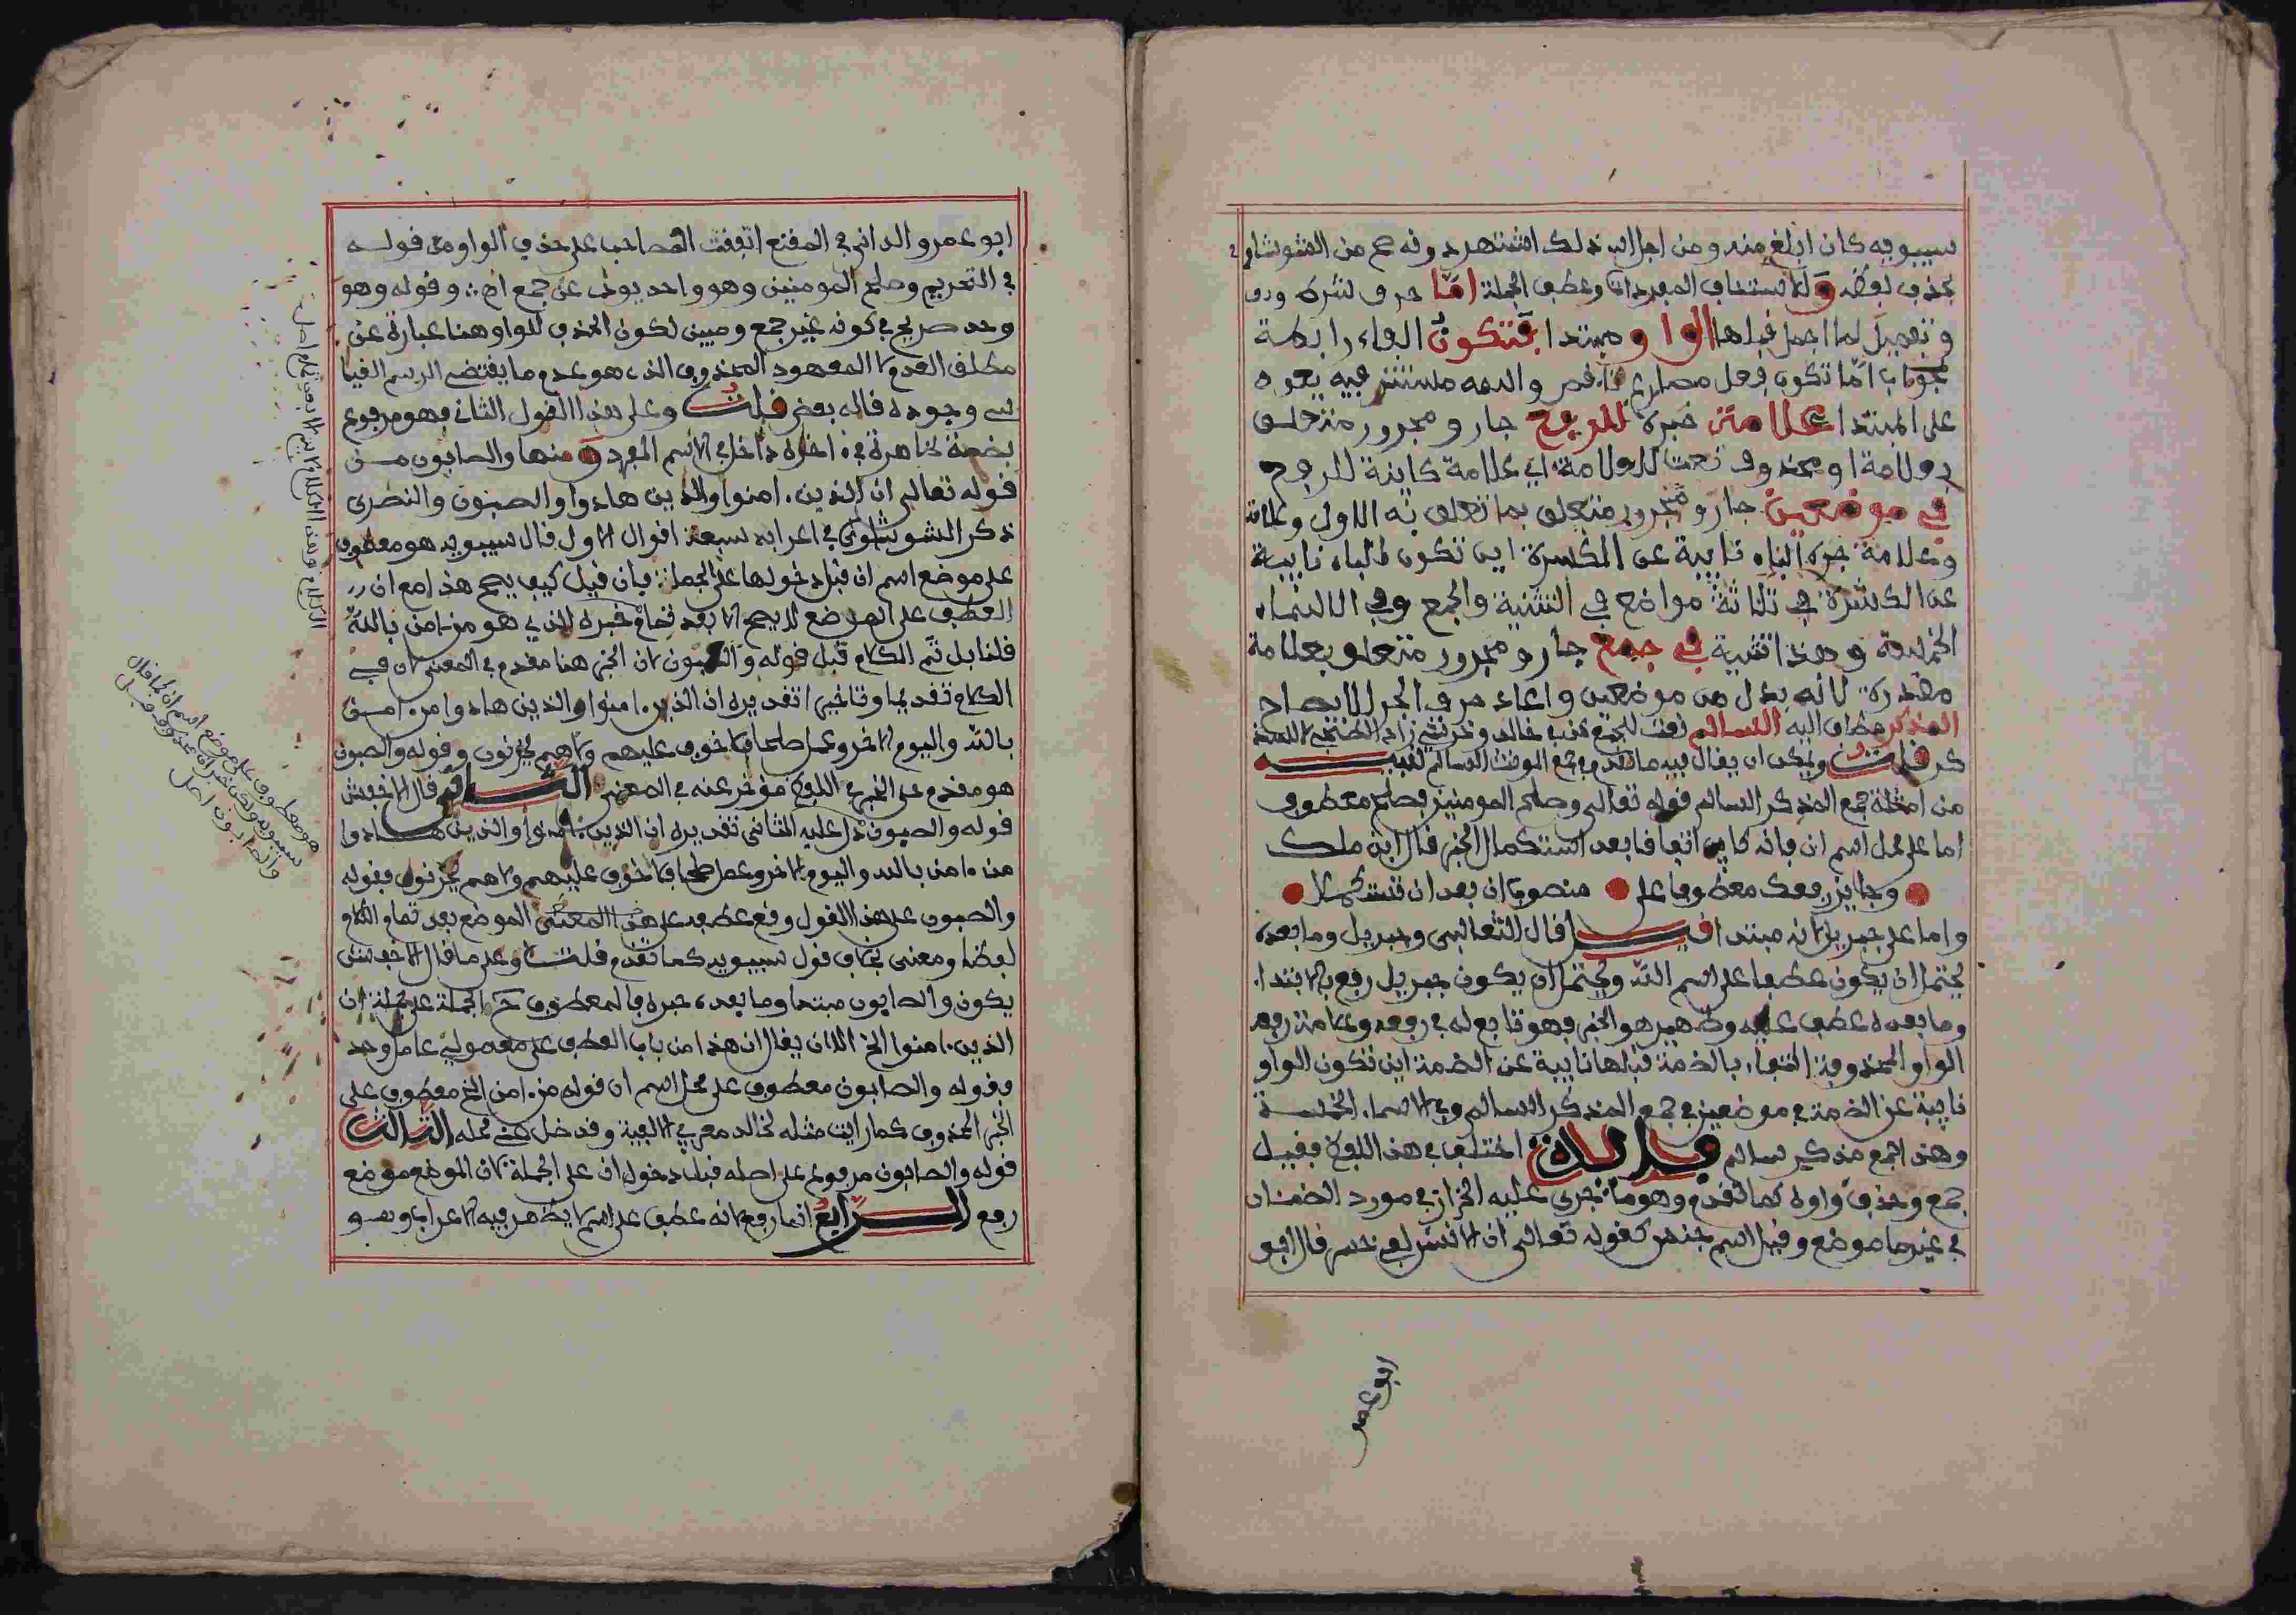 سيبويه كان ابلغ منه ومن اجل ذلك اشتهر دونه صح من الشوشاوي
بحذف لفظه و الاستئناف المفردات وعطف الجملة اما حرف شرط
وتفصيل لما اجمل قبلها الواو مبتدا فتكون الفاء رابطة
لجواب اما تكون فعل مضارع ناقص واسمه مستتر فيه يعود
على المبتدا علامة خبره للرفع جار ومجرور متعلق
بعلامة او محذوف نعت للعلامة اي علامة كاينة للرفع
في موضعين جار ومجرور متعلق بما تعلق به الاول
وعلامة جره الياء نايبة عن الكسرة اين تكون الياء نايبة
عن الكسرة في ثلاثة مواضع في التثنية والجمع وفي الاسماء
الخمسة وهذا تثنية في جمع جار ومجرور متعلق بعلامة
مقدرة لانه بدل من موضعين واعاد حرف الجر للايضاح
المذكر مضاف اليه السالم نعت للجمع
قلت ويمكن ان يقال فيه ما تقدم في جمع المونث السالم تنبيه
من امثلة جمع المذكر السالم قوله تعالى وصلح المومنين فصلح معطوف
اما على محل اسم ان فانه كاين اتفاقا بعد استكمال الخبر قال ابن ملك
وجايز رفعك معطوفا على منصوب ان بعد ان تستكملا
واما على جبريل لانه مبتدا قال الثعالبي وجبريل وما بعده
يحتمل ان يكون عطفا على اسم الله ويحتمل ان يكون جبريل رفع بالابتداء
وما بعده عطف عليه وظهير هو الخبر فهو تابع له في رفعه وعلامة رفعه
الواو المحذوفة اكتفاء بالضمة قبلها نايبة عن الضمة اين تكون الواو
نايبة عن الضمة في موضعين في جمع المذكر السالم وفي الاسماء الخمسة
وهذا جمع مذكر سالم اختلف في هذا اللفظ فقيل
جمع وحذف واوه كما تقدم وهو ما جرى عليه الخراز في مورد الظمئان
في غير ما موضع وقيل اسم جنس كقوله تعالى ان الانسن لفي خسر قال ابو
ابو عمرو
ابو عمرو الداني في المقنع اتفقت المصاحف على حذف الواو من قوله
في التحريم وصلح المومنين وهو واحد يودي عن جمع اه وقوله وهو
وحد صريح في كونه غير جمع وحيين لكون الحذف للواو هنا عبارة عن
مطلق العدم لا المعهود المحذوف الذي هو عدم ما يقتضي الرسم القياسي
وجوده قاله بعض قلت وعلى هذا القول الثاني فهو مرفوع
بضمة ظاهرة في اخره داخل في الاسم المفرد و منها والصابون من
قوله تعالى ان الذين ءامنوا والذين هادوا والصبون والنصرى
ذكر الشوشاوي في اعرابه سبعة اقوال الاول قال سيبويه هو معطوف
على موضع اسم ان قبل دخولها على الجملة فان قيل كيف يصح هذا مع ان
العطف على الموضع لا يصح الا بعد تمام خبره الذي هو من ءامن بالله
قلنا بل تم الكلام قبل قوله والصبون لان الخبر هنا مقدم في المعنى لان في
الكلام تقديما وتاخيرا تقديره ان الذين ءامنوا والذين هادوا من ءامن
بالله واليوم الاخر وعمل صلحا فلا خوف عليهم ولا هم يحزنون وقوله والصبون
هو مقدم على الخبر في اللفظ مؤخر عنه في المعنى الثاني قال الاخفش
قوله والصبون دل عليه الثاني تقديره ان الذين ءامنوا والذين هادوا
من ءامن بالله واليوم الاخر وعمل صلحا فلا خوف عليهم ولا هم يحزنون فقوله
والصبون على هذا القول وقع عطفه على هذا المعنى الموضع بعد تمام الكلام
لفظا ومعنى بخلاف قول سيبويه كما تقدم قلت وعلى ما قال الاخفش
يكون والصابون مبتدا وما بعده خبره فالمعطوف ح الجملة على جملة ان
الذين ءامنوا الخ الا ان يقال ان هذا من باب العطف على معمولي عامل وحد
فقوله والصابون معطوف على محل اسم ان قوله من ءامن الخ معطوف على
الخبر المحذوف كما رايت مثله لخالد معرب الالفية وقد ضل عني محله الثالث
قوله والصابون مرفوع على اصله قبل دخول ان على الجملة لان الموضع موضع
رفع الرابع انما رفع لانه عطف على اسم لا يظهر فيه الاعراب وهو
هو معطوف على موضع اسم ان كما قال
سيبويه ولكن خبر ان محذوف قبل
والصابون اصل